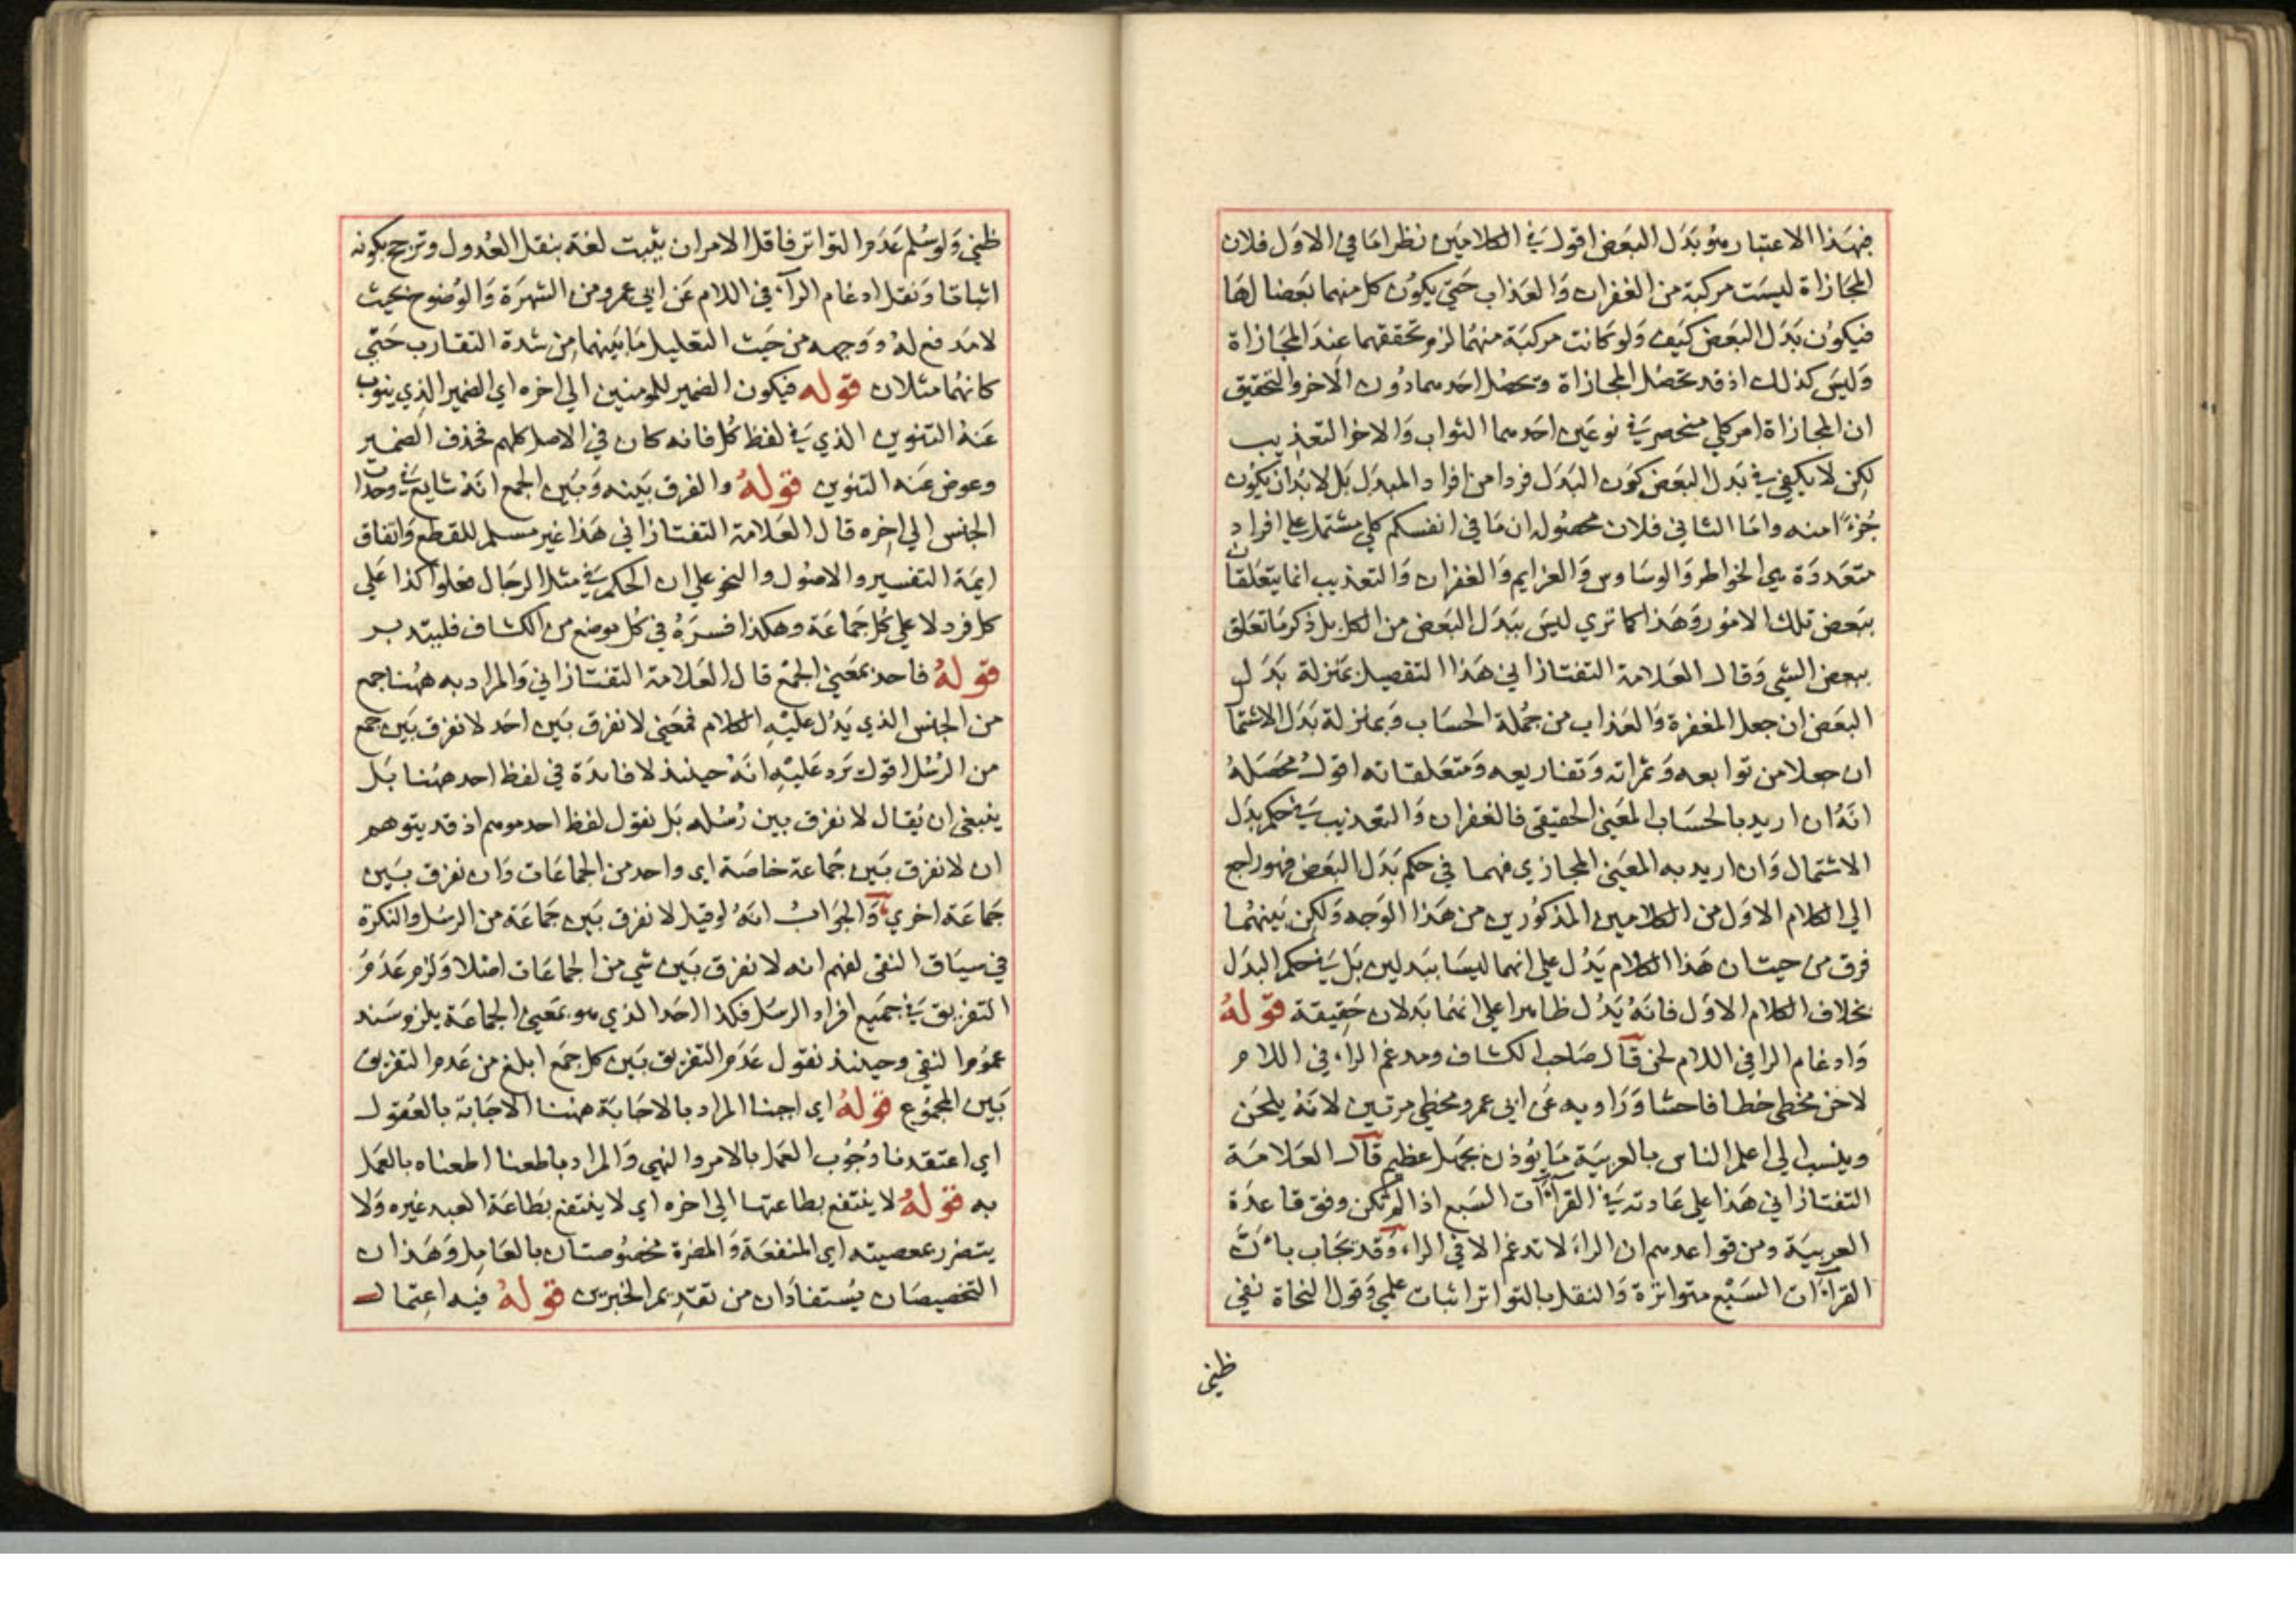 فهذا الاعتبار هو بدل البعض اقول في الكلامين نظر اما في الاول فلان
المجازاة ليست مركبة من الغفران والعذاب حتي يكون كل منهما بعضا لها
فيكون بدل البعض كيف ولو كانت مركبة منهما لزم تحققهما عند المجازاة
وليس كذلك اذ قد تحصل المجازاة ويحصل احدهما دون الاخر والتحقيق
ان المجازاة امر كلي منحصر في نوعين احدهما الثواب والاخر التعذيب
لكن لا يكفي في بدل البعض كون البدل فردا من افراد المبدل بل لا بد ان يكون
جزءا منه واما الثاني فلان محصوله ان ما في انفسكم كلي مشتمل علي افراد
متعددة هي الخواطر والوساوس والعزايم والغفران والتعذيب انما يتعلقان
ببعض تلك الامور وهذا كما تري ليس ببدل البعض من الكل بل ذكر ما تعلق
ببعض الشي وقال العلامة التفتازاني هذا التفصيل بمنزلة بدل
البعض ان جعل المغفرة والعذاب من جملة الحساب وبمنزلة بدل الاشتما
ان جعلا من توابعه وثمراته وتفاريعه ومتعلقاته اقول محصله
انه ان اريد بالحساب المعني الحقيقي فالغفران والتعذيب في حكم بدل
الاشتمال وان اريد به المعني المجازي فهما في حكم بدل البعض فهو راجع
الي الكلام الاول من الكلامين المذكورين من هذا الوجه ولكن بينهما
فرق من حيث ان هذا الكلام يدل علي انهما ليسا ببدلين بل في حكم البدل
بخلاف الكلام الاول فانه يدل ظاهرا علي انهما بدلان حقيقة قوله
وادغام الرا في اللام لحن قال صاحب الكشاف ومدغم الراء في اللام
لاحن مخطي خطا فاحشا وراويه عن ابي عمرو مخطي مرتين لانه يلحن
وينسب الي اعلم الناس بالعربية ما يؤذن بجهل عظيم قال العلامة
التفتازاني هذا علي عادته في القرآات السبع اذا لم تكن وفق قاعدة
العربية ومن قواعدهم ان الراء لا تدغم الا في الراء وقد يجاب بان
القراآت السبع متواترة والنقل بالتواتر اثبات علمي وقول النحاة نفي
ظني
ظني ولو سلم عدم التواتر فاقل الامر ان يثبت لغة بنقل العدول وترجح بكونه
اثباتا ونقل ادغام الرآء في اللام عن ابي عمرو من الشهرة والوضوح بحيث
لا مدفع له ووجهه من حيث التعليل ما بينهما من شدة التقارب حتي
كانهما مثلان قوله فيكون الضمير للمومنين الي اخره اي الضمير الذي ينوب
عنه التنوين الذي في لفظ كل فانه كان في الاصل كلهم فحذف الضمير
وعوض عنه التنوين قوله والفرق بينه وبين الجمع انه شايع في وحدان
الجنس الي اخره قال العلامة التفتازاني هذا غير مسلم للقطع واتفاق
ايمة التفسير والاصول والنحو علي ان الحكم في مثل الرجال فعلوا كذا علي
كل فرد لا علي كل جماعة وهكذا فسره في كل موضع من الكشاف فليتدبر
قوله فاحد بمعني الجمع قال العلامة التفتازاني والمراد به ههنا جمع
من الجنس الذي يدل عليه الكلام فمعني لا نفرق بين احد لا نفرق بين جمع
من الرسل اقول يرد عليه انه حينئذ لا فائدة في لفظ احد ههنا بل
ينبغي ان يقال لا نفرق بين رسله بل نقول لفظ احد موهم اذ قد يتوهم
ان لا نفرق بين جماعة خاصة اي واحد من الجماعات وان نفرق بين
جماعة اخري والجواب انه لو قيل لا نفرق بين جماعة من الرسل والنكرة
في سياق النفي لفهم انه لا نفرق بين شي من الجماعات اصلا ولزم عدم
التفريق في جميع افراد الرسل فكذا احد الذي هو بمعني الجماعة يلزم سند
عموم النفي وحينئذ نقول عدم التفريق بين كل جمع ابلغ من عدم التفريق
بين المجموع قوله اي اجبنا المراد بالاجابة ههنا الاجابة بالعقول
اي اعتقدنا وجوب العمل بالامر والنهي والمراد باطعنا اطعناه بالعمل
به قوله لا ينتفع بطاعتها الي اخره اي لا ينتفع بطاعة العبد غيره ولا
يتضرر بمعصيته اي المنفعة والمضرة مخصوصتان بالعامل وهذان
التخصيصان يستفادان من تقديم الخبرين قوله فيه اعتمال